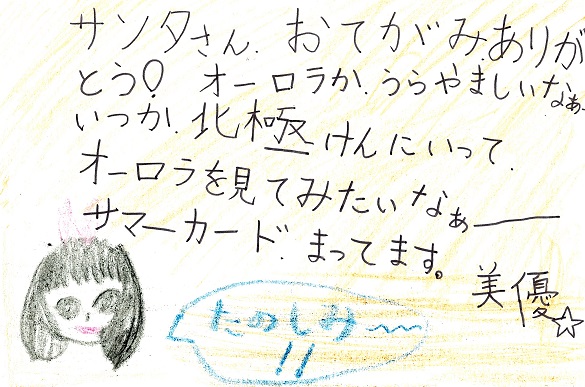 サンタさん.おてがみ.ありが
とう! オーロラか.うらやましいなぁ.
いつか.北極けんにいって.
オーロラを見てみたいなぁ——
サマーカード.まってます。
美優☆
たのしみ〜〜
!!